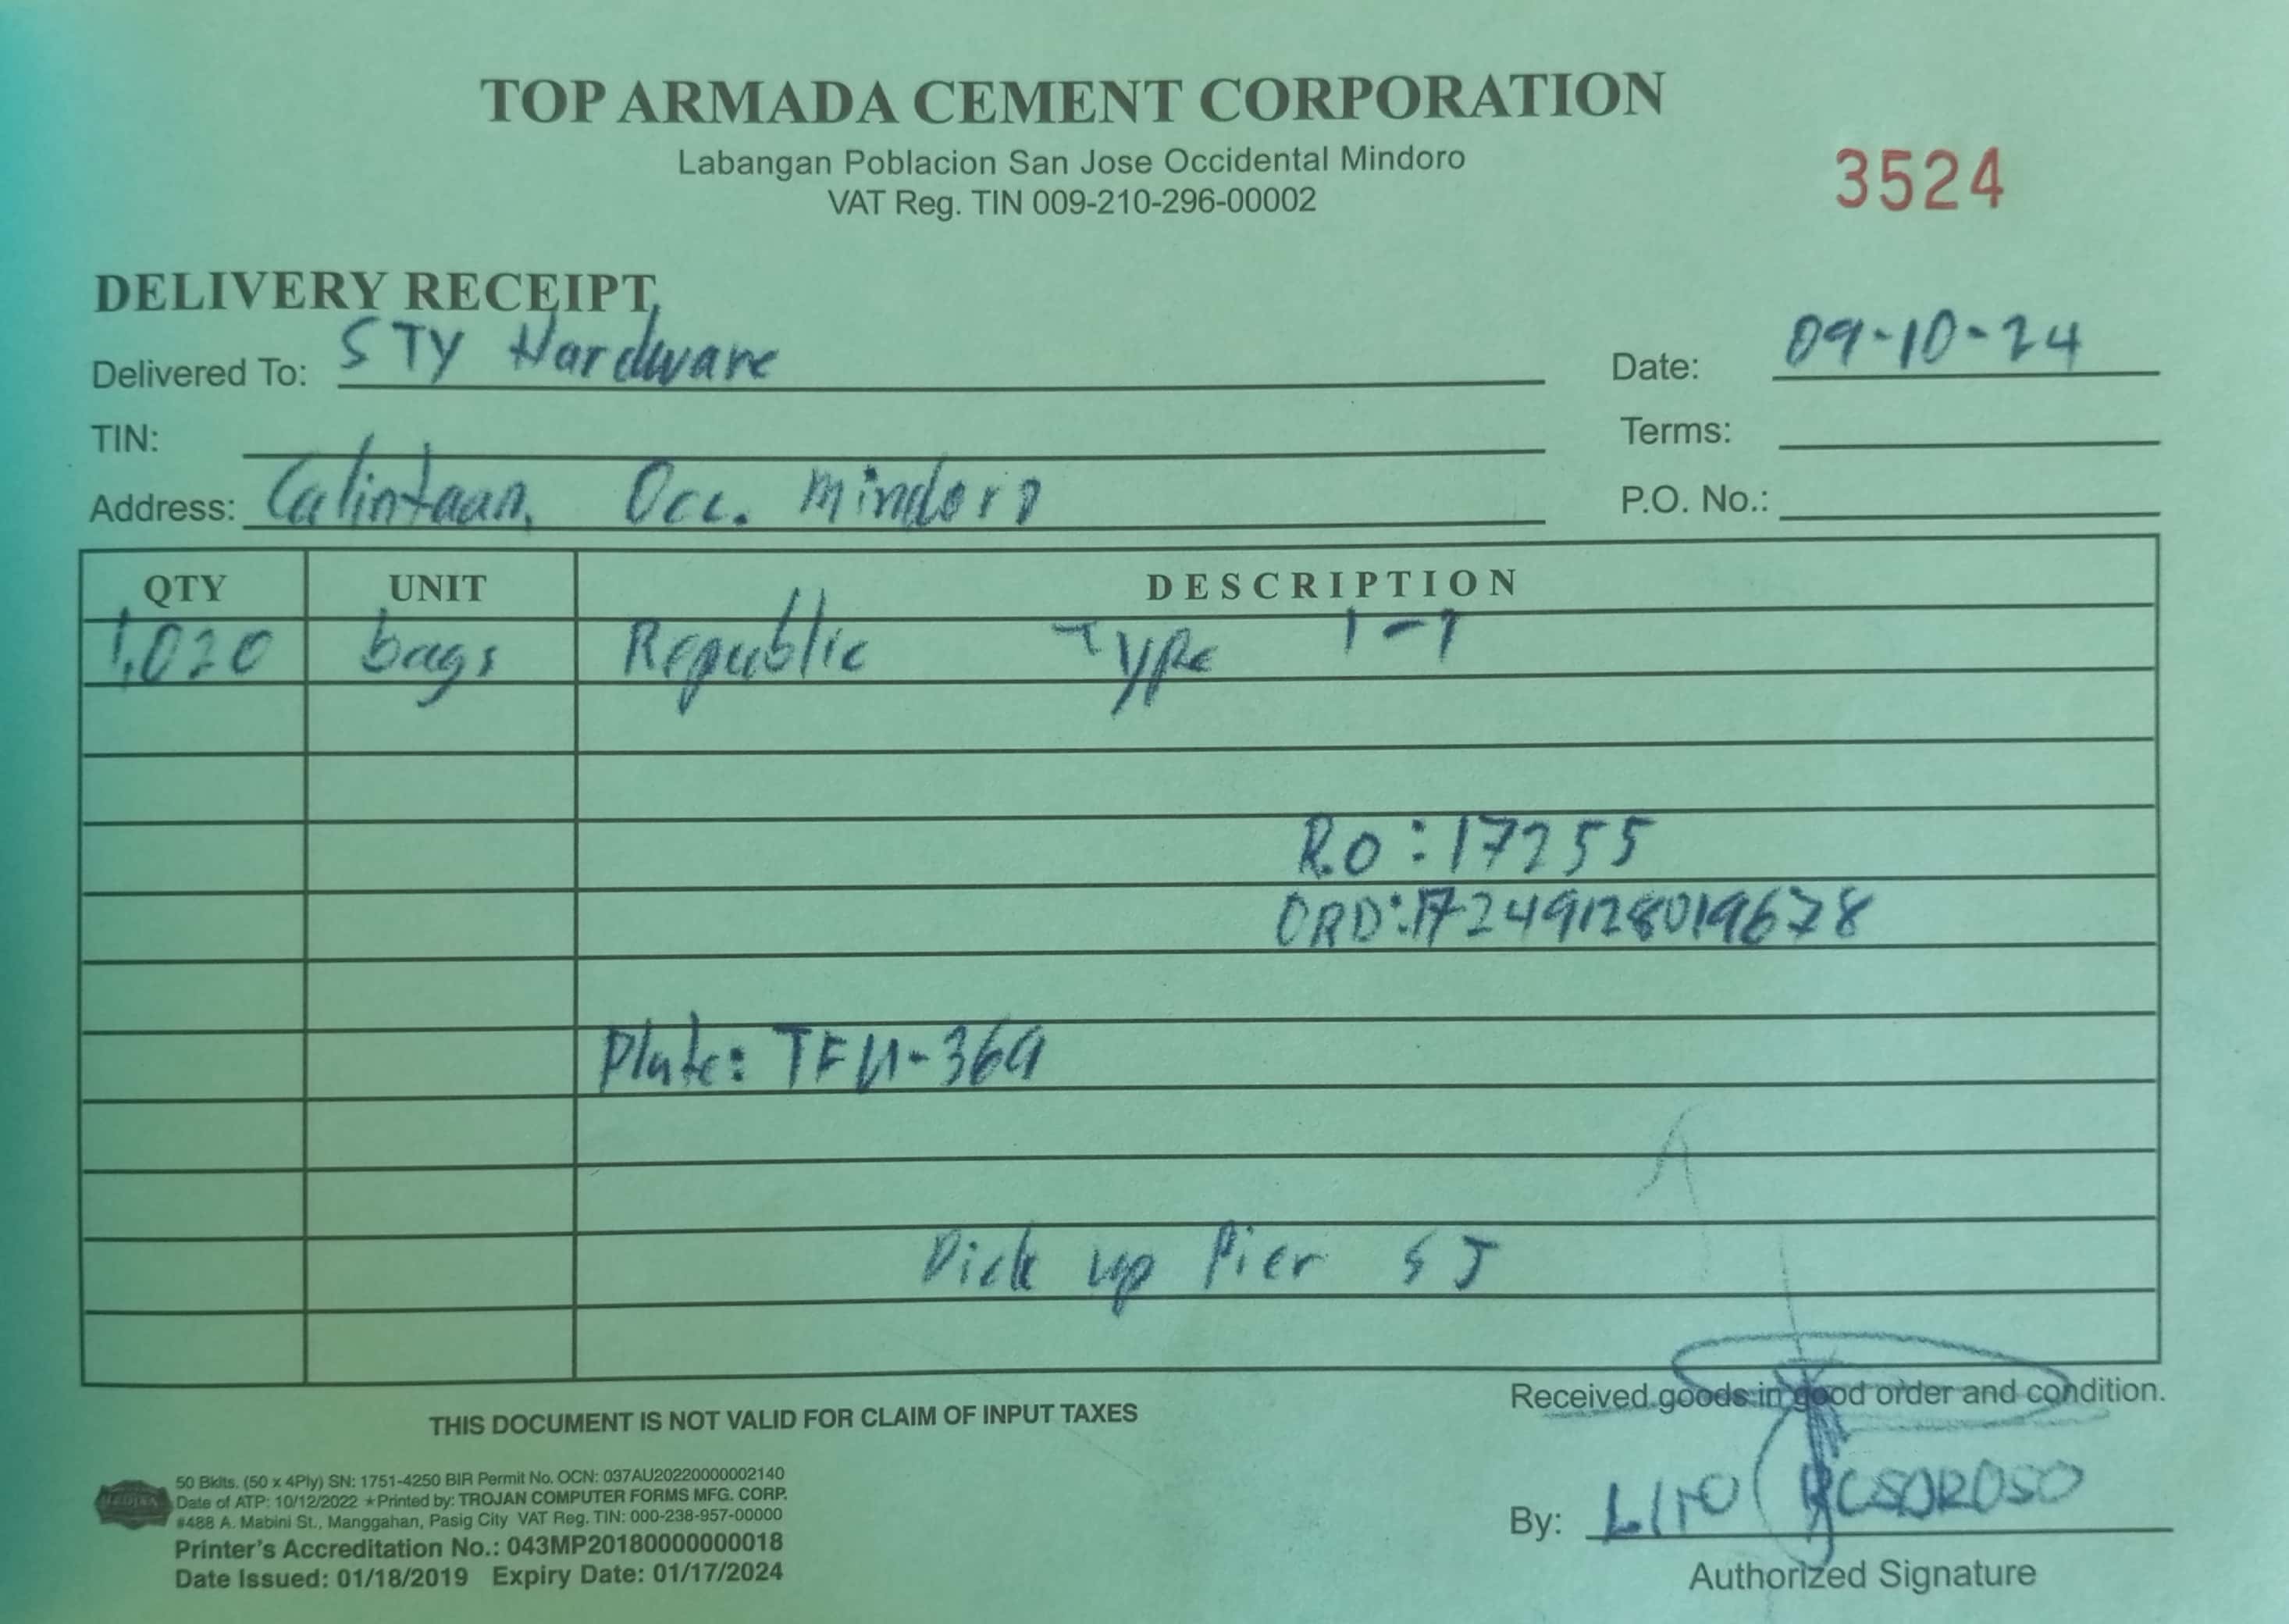 TOP ARMADA CEMENT CORPORATION
Labangan Poblacion San Jose Occidental Mindoro
VAT Reg. TIN 009-210-296-00002
3524
DELIVERY RECEIPT
Delivered To: STY Hardware
Date: 09-10-24
TIN:
Terms:
Address: Calintaan, Occ. Mindoro
P.O. No.:
QTY UNIT DESCRIPTION
1,020 bags Republic Type 1-T
R.O: 17255
ORD: 17249128019678
Plate: TFU-369
Pick up Pier SJ
Received goods in good order and condition.
THIS DOCUMENT IS NOT VALID FOR CLAIM OF INPUT TAXES
50 Bklts. (50 x 4Ply) SN: 1751-4250 BIR Permit No. OCN: 037AU20220000002140
Date of ATP: 10/12/2022 ★Printed by: TROJAN COMPUTER FORMS MFG. CORP.
#488 A. Mabini St., Manggahan, Pasig City VAT Reg. TIN: 000-238-957-00000
Printer's Accreditation No.: 043MP20180000000018
Date Issued: 01/18/2019 Expiry Date: 01/17/2024
By: LITO
Authorized Signature